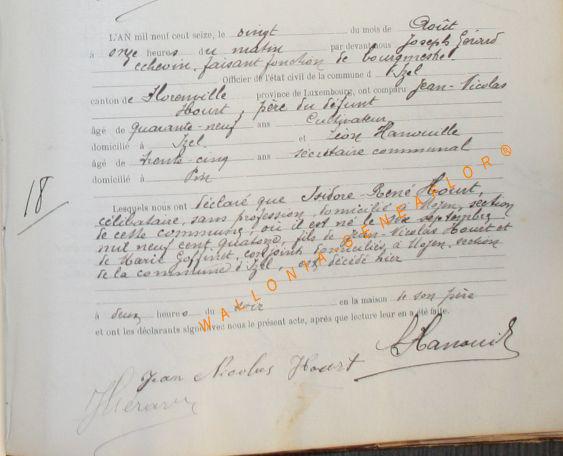 L'AN mil neuf cent seize, le vingt du mois de Août
à onze heures du matin par devant nous Joseph Gérard
échevin, faisant fonction de bourgmestre
Officier de l'état civil de la commune d'Izel
canton de Florenville province de Luxembourg, ont comparu Jean-Nicolas
Hourt, père du défunt
âgé de quarante-neuf ans Cultivateur
domicilié à Izel et Léon Hanouille
âgé de trente-cinq ans secrétaire communal
domicilié à Pin
18
Lesquels nous ont déclaré que Isidore-René Hourt,
célibataire, sans profession, domicilié à Moyen, section
de cette commune, où il est né le septembre
mil neuf cent quatorze, fils de Jean-Nicolas Hourt et
de Marie Goffinet, conjoints domiciliés à Moyen, section
de la commune d'Izel, est décédé hier
à deux heures du soir en la maison de son père
et ont les déclarants signé avec nous le présent acte, après que lecture leur en a été faite.
WALLONIA GENEALLOR ®
Jean Nicolas Hourt